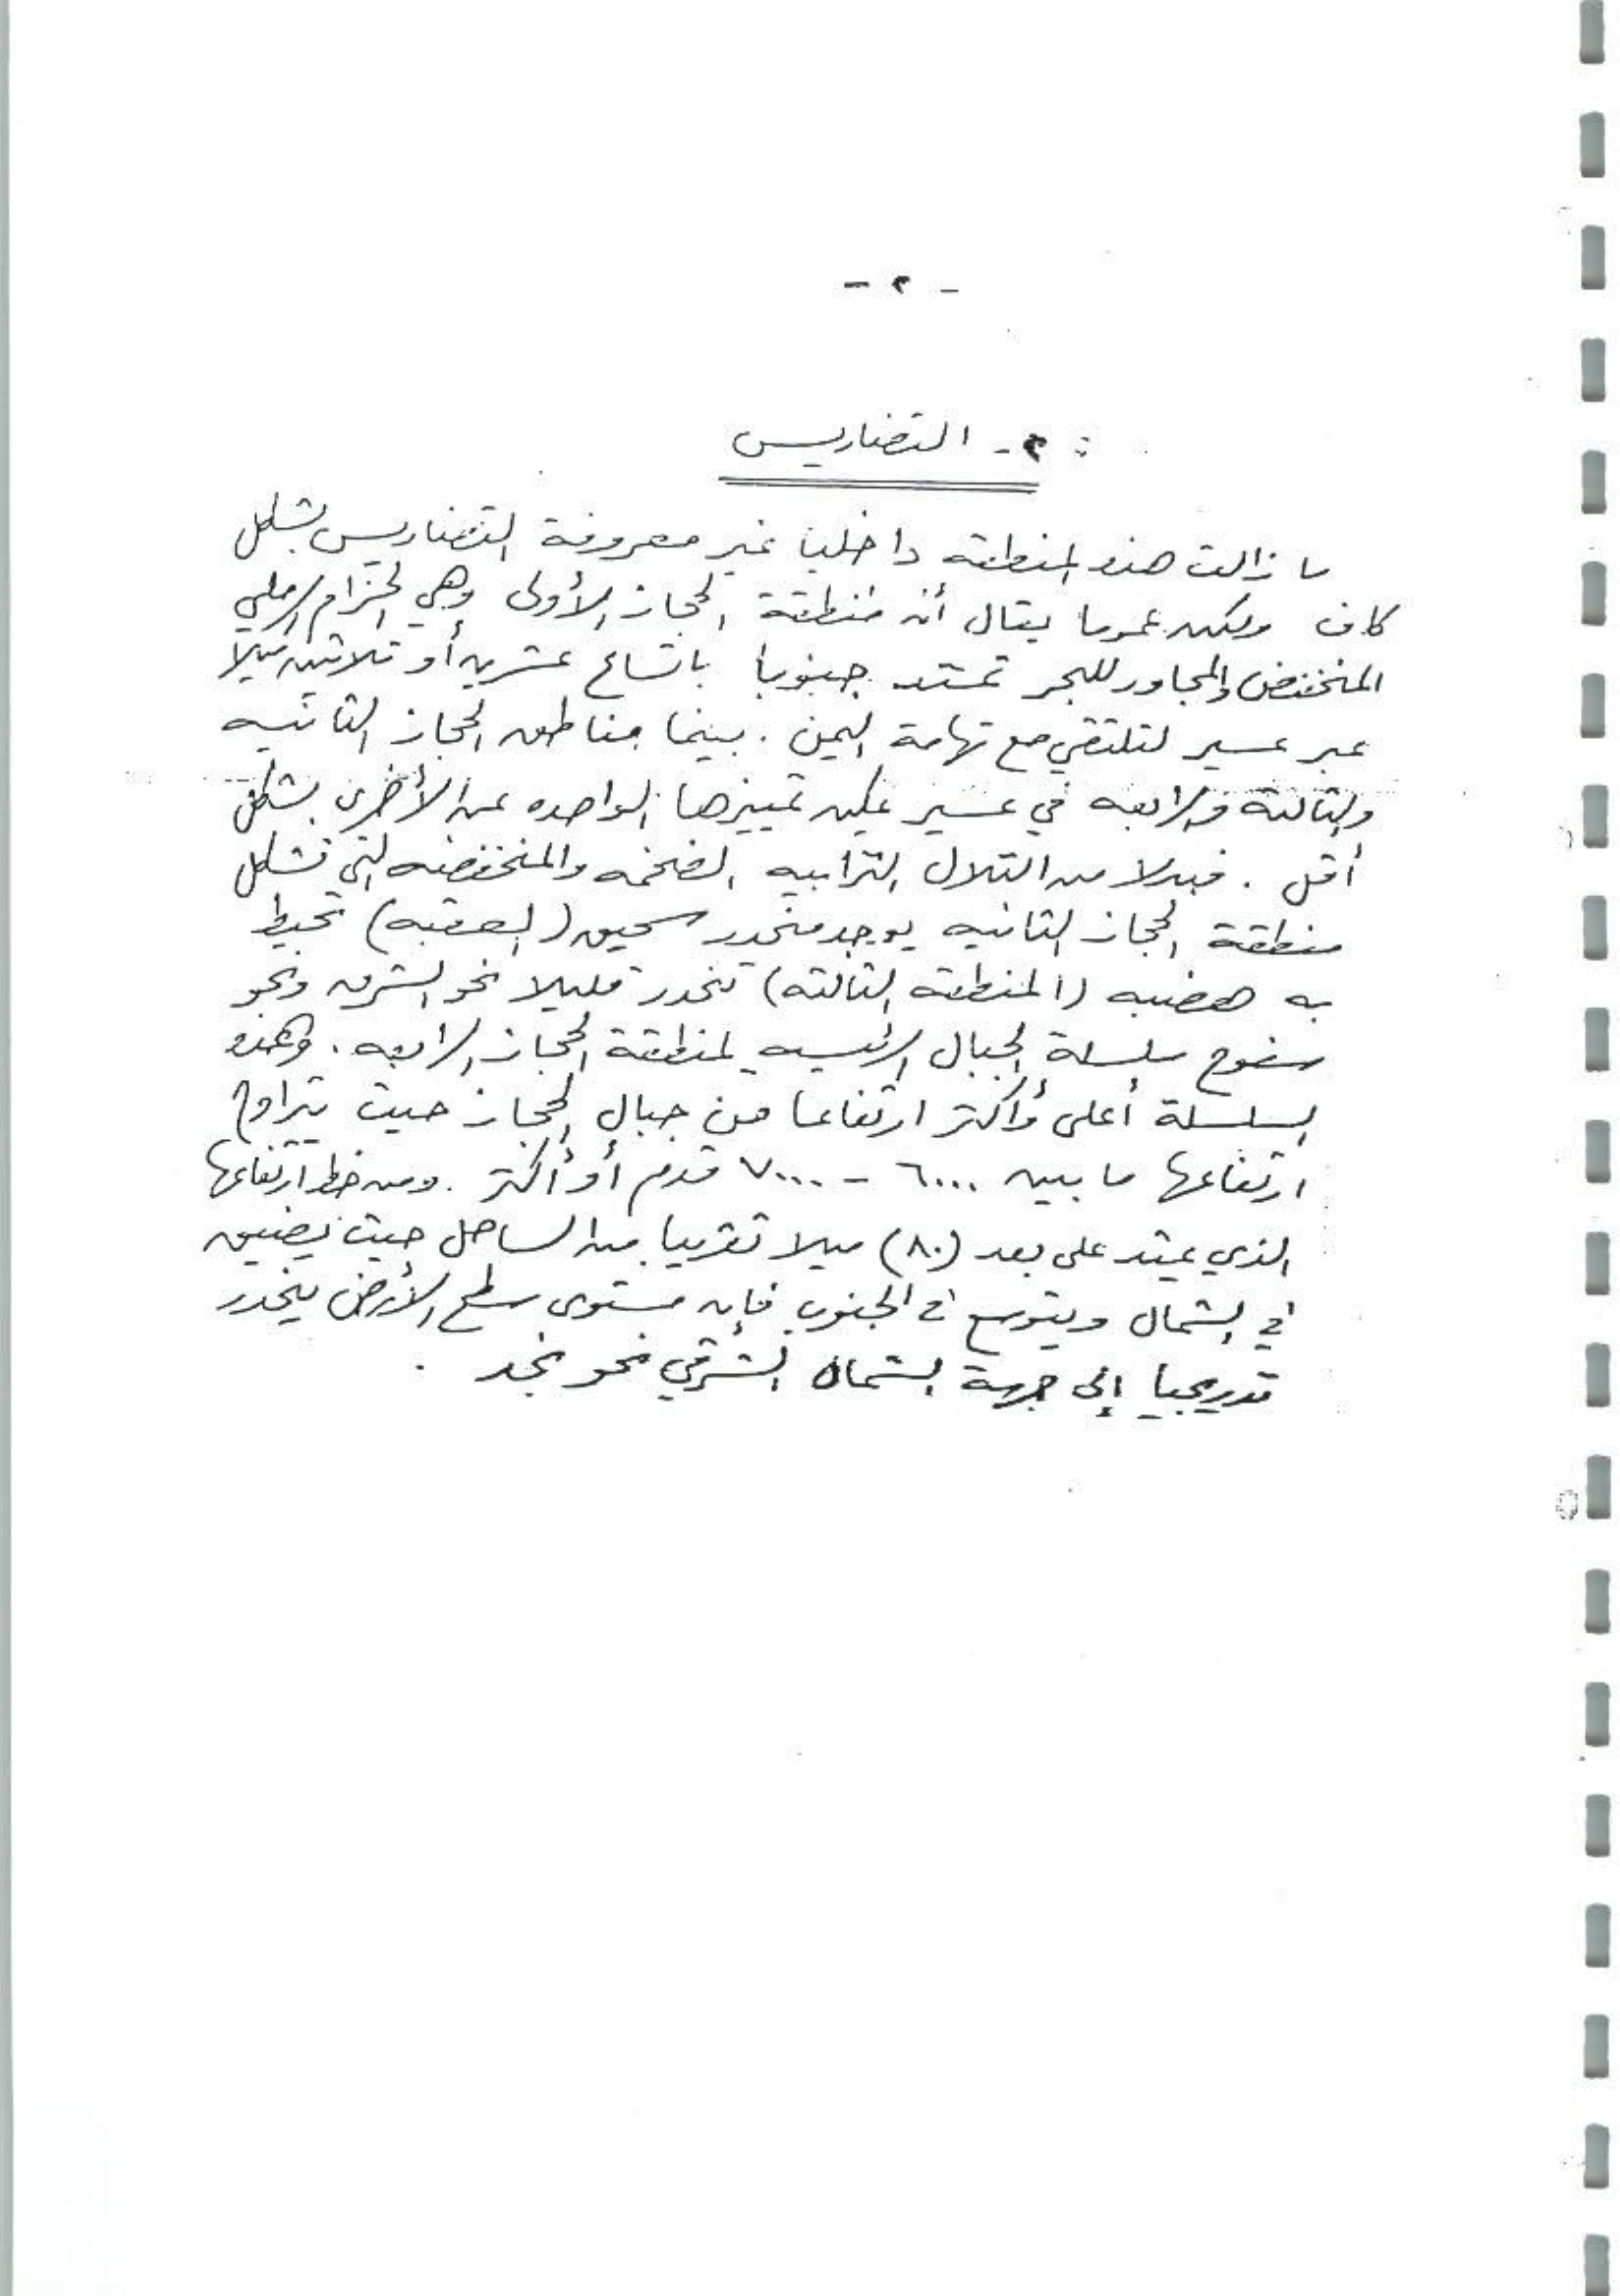 - ٢ -
٢- التضاريس :
ما زالت هذه المنطقة داخليا غير معروفة التضاريس بشكل
كاف ولكن عموما يقال أن منطقة الحجاز الأولى وهي الحزام الرملي
المنخفض والمجاور للبحر تمتد جنوبا باتساع عشرين أو ثلاثين ميلا
عبر عسير لتلتقي مع تهامة اليمن . بينما مناطق الحجاز الثانيه
والثالثة والرابعه في عسير يمكن تمييزها الواحده عن الأخرى بشكل
أقل . فبدلا من التلال الترابيه الضخمه والمنخفضه التي تشكل
منطقة الحجاز الثانيه يوجد منحدر سحيق (العقبه) تحيط
به هضبه (المنطقة الثالثه) تنحدر قليلا نحو الشرق ونحو
سفوح سلسلة الجبال الرئيسيه لمنطقة الحجاز الرابعه . وهذه
السلسلة أعلى وأكثر ارتفاعا من جبال الحجاز حيث يتراوح
ارتفاعها ما بين ٦٠٠٠ - ٧٠٠٠ قدم أو أكثر . ومن خط ارتفاعها
الذي يمتد على بعد (٨٠) ميلا تقريبا من الساحل حيث يضيق
في الشمال ويتوسع في الجنوب فإن مستوى سطح الأرض ينحدر
تدريجيا إلى جهة الشمال الشرقي نحو نجد .